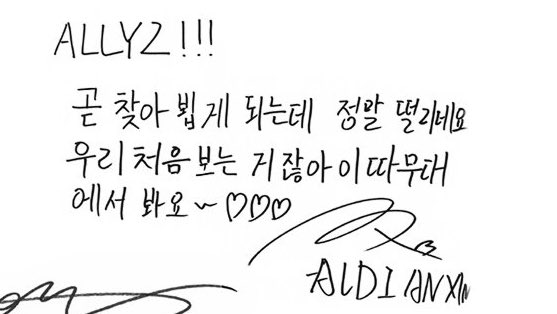 ALLYZ!!!
곧 찾아 뵙게 되는데 정말 떨리네요
우리 처음 보는 거 잖아 이따 무대
에서 봐요~♡♡♡
ALDI ANXIN